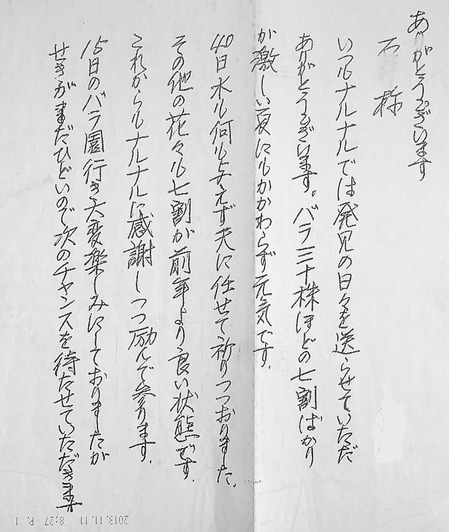 ありがとうございます
石 様
いつもナルナルでは発見の日々を送らせていただ
ありがとうございます。バラ三十株ほどの七割ばかり
が激しい夏にもかかわらず元気です。
40日水も何も与えず天に任せて祈りつつおりました。
その他の花々も七割が前年より良い状態です。
これからもナルナルに感謝しつつ励んで参ります。
15日のバラ園行き大変楽しみにしておりましたが
せきがまだひどいので次のチャンスを待たせていただきます
2013.11.11 8:27 P. 1